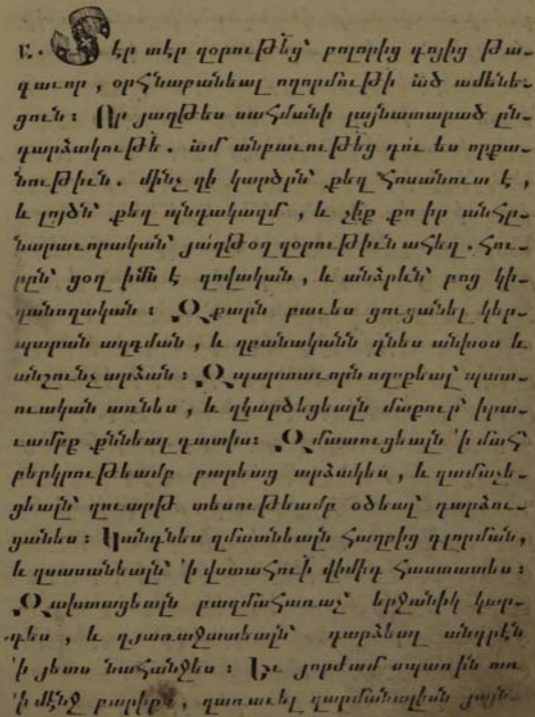 Ե. Տէր տէր զօրութեց՝ բոլորից գոյից թա-
գաւոր, օրհնաբանեալ ողորմութի ած ամենե-
ցուն: Որ յաղթես սահմանի լայնատարած ըն-
դարձակութե. ամ անբաւութեց դու ես որքա-
նութիւն. մինչ զի կարծրն՝ քեզ հոսանուտ է,
և լոյծն՝ քեզ պնդակազմ, և չիք քո իր անհը-
նարաւորական՝ յաղթօղ զօրութիւն ահեղ. Հու-
րըն՝ ցօղ իմն է զովական, և անձրևն՝ բոց կի-
զանողական: Զքարն բաւես ցուցանել կեր-
պարան ազդման, և զբանականն դնես անխօս և
անշունչ արձան: Զպարտաւորն ողոքեալ՝ պատ-
ուական առնես, և զկարծեցեալն մաքուր՝ իրա-
ւամբք քննեալ դատիս: Զմատուցեալն ՛ի մահ՝
բերկրութեամբ բարեաց արձակես, և զամաչե-
ցեալն՝ զուարթ տեսութեամբ օծեալ՝ դարձու-
ցանես: Կանգնես զմատնեալն հաղբից գլորման,
և զսասանեալն՝ ՛ի վստահուի վիմիդ հաստատես:
Զախտացեալն բազմահառաչ՝ երջանիկ կար-
գես, և զյառաջատեալն՝ դարձեալ անդրէն
՛ի յետս նահանջես: Եւ յորժամ սպառին առ
՛ի մէնջ բարիք, զառաւել զարմանալիսն յայն-